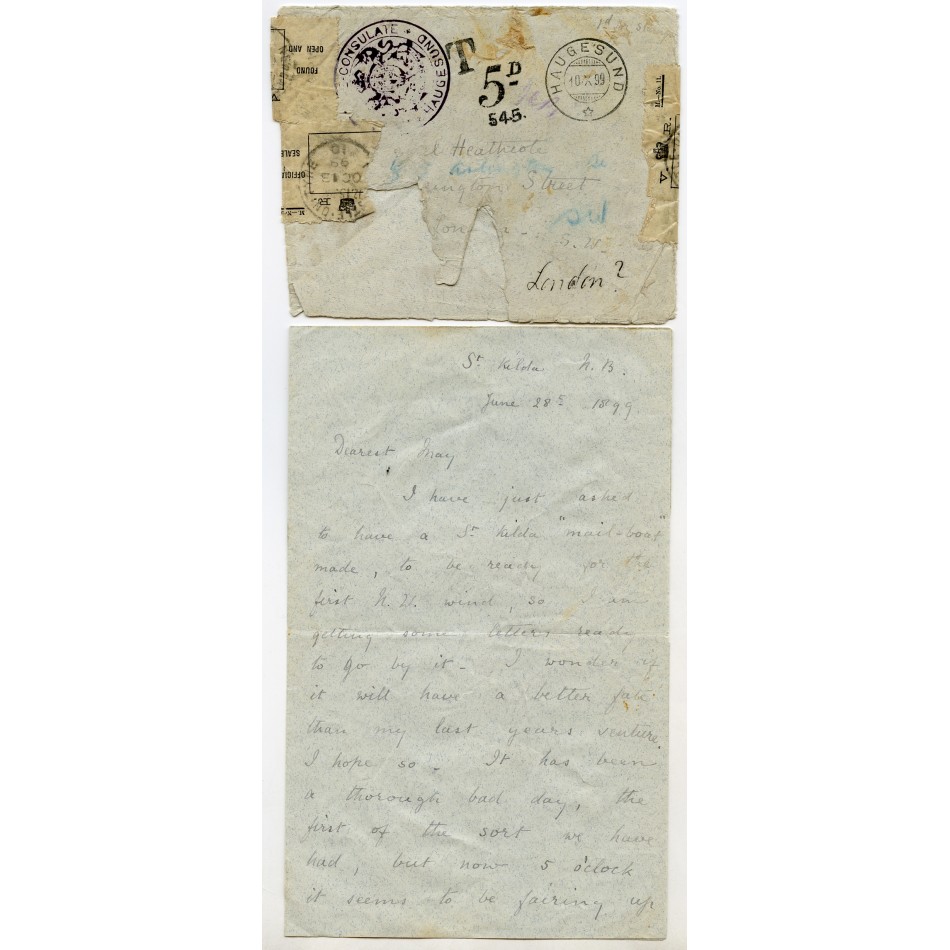 CONSULATE * HAUGESUND
T
5D
545.
HAUGESUND
10 X 99
FOUND OPEN AND
OFFICIALLY SEALED
V R.
Heathcote
Street
S.W.
S.W.
London?
St Kilda N.B.
June 28th 1899
Dearest May
I have just asked
to have a St Kilda "mail-boat"
made, to be ready for the
first N.W. wind, so I am
getting some letters ready
to go by it - I wonder if
it will have a better fate
than my last years venture.
I hope so - It has been
a thorough bad day, the
first of the sort we have
had, but now 5 o'clock
it seems to be fairing up